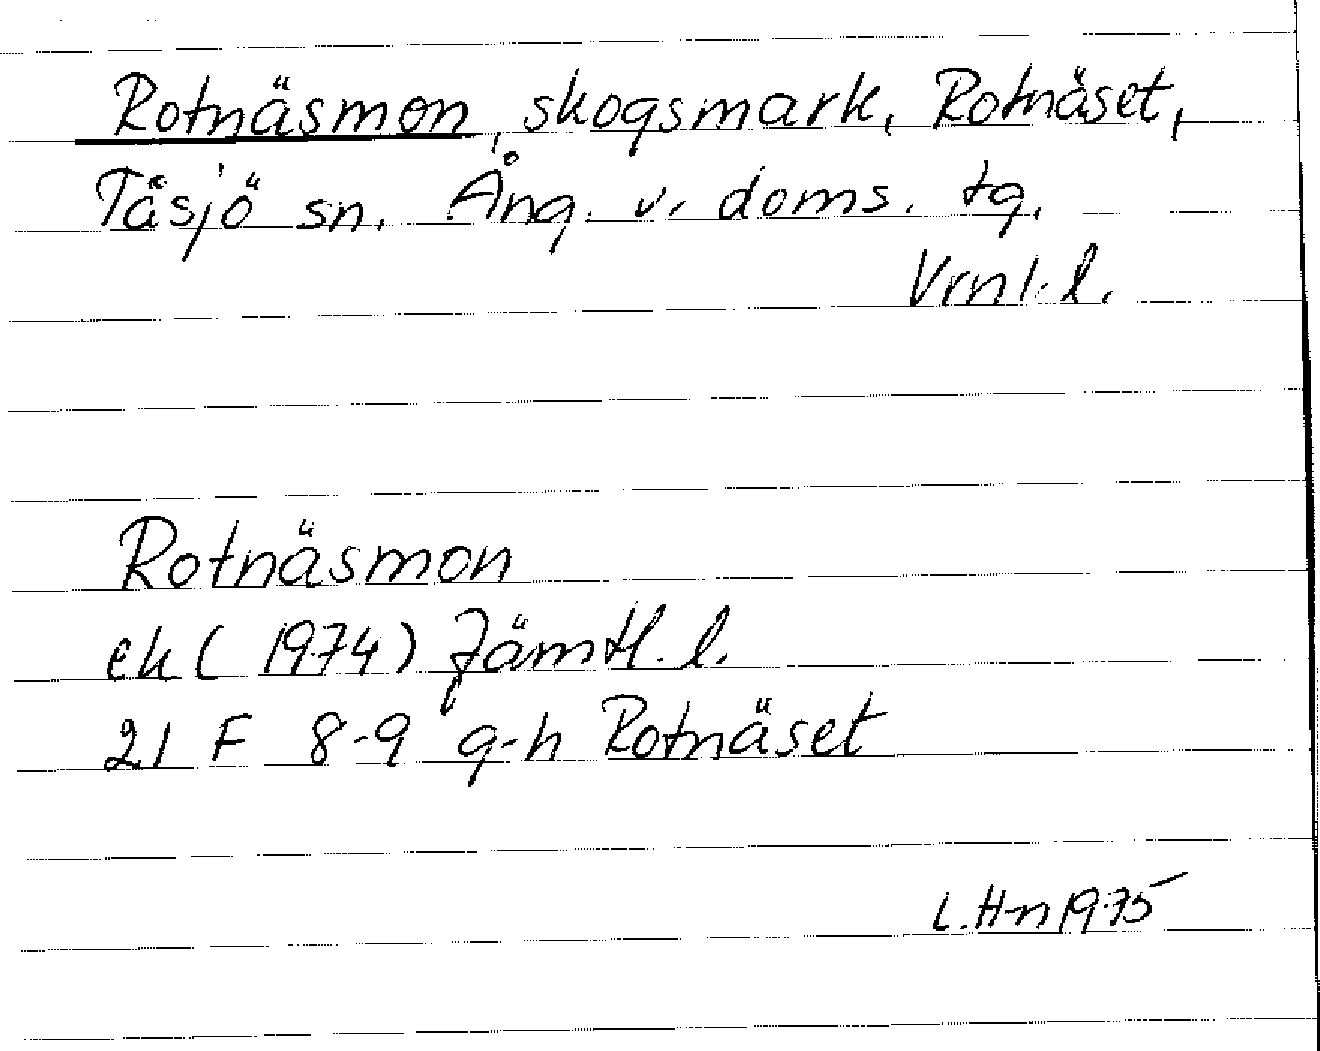 Rotnäsmon, skogsmark, Rotnäset,
Tåsjö sn. Ång. v. doms. tg.
Vrnl. l.
Rotnäsmon
ek (1974) Jämtl. l.
21 F 8-9 g-h Rotnäset
L. Hn 1975